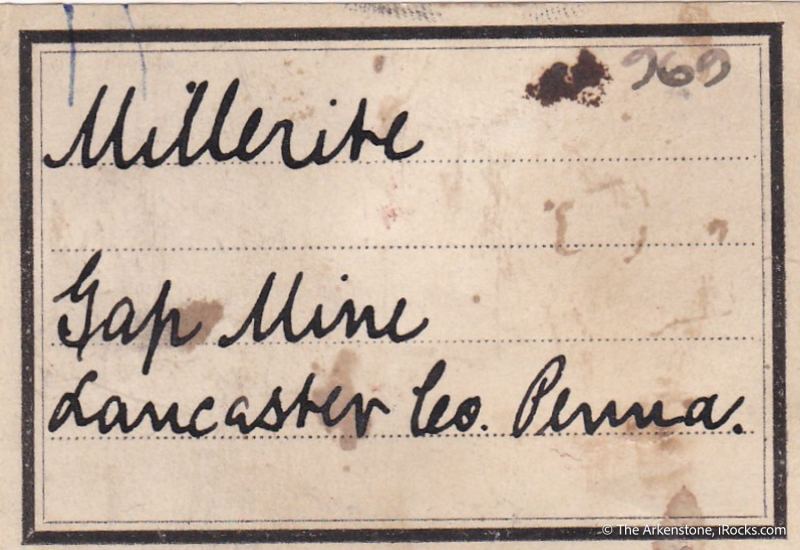 969
Millerite
Gap Mine
Lancaster Co. Penna.
© The Arkenstone, iRocks.com